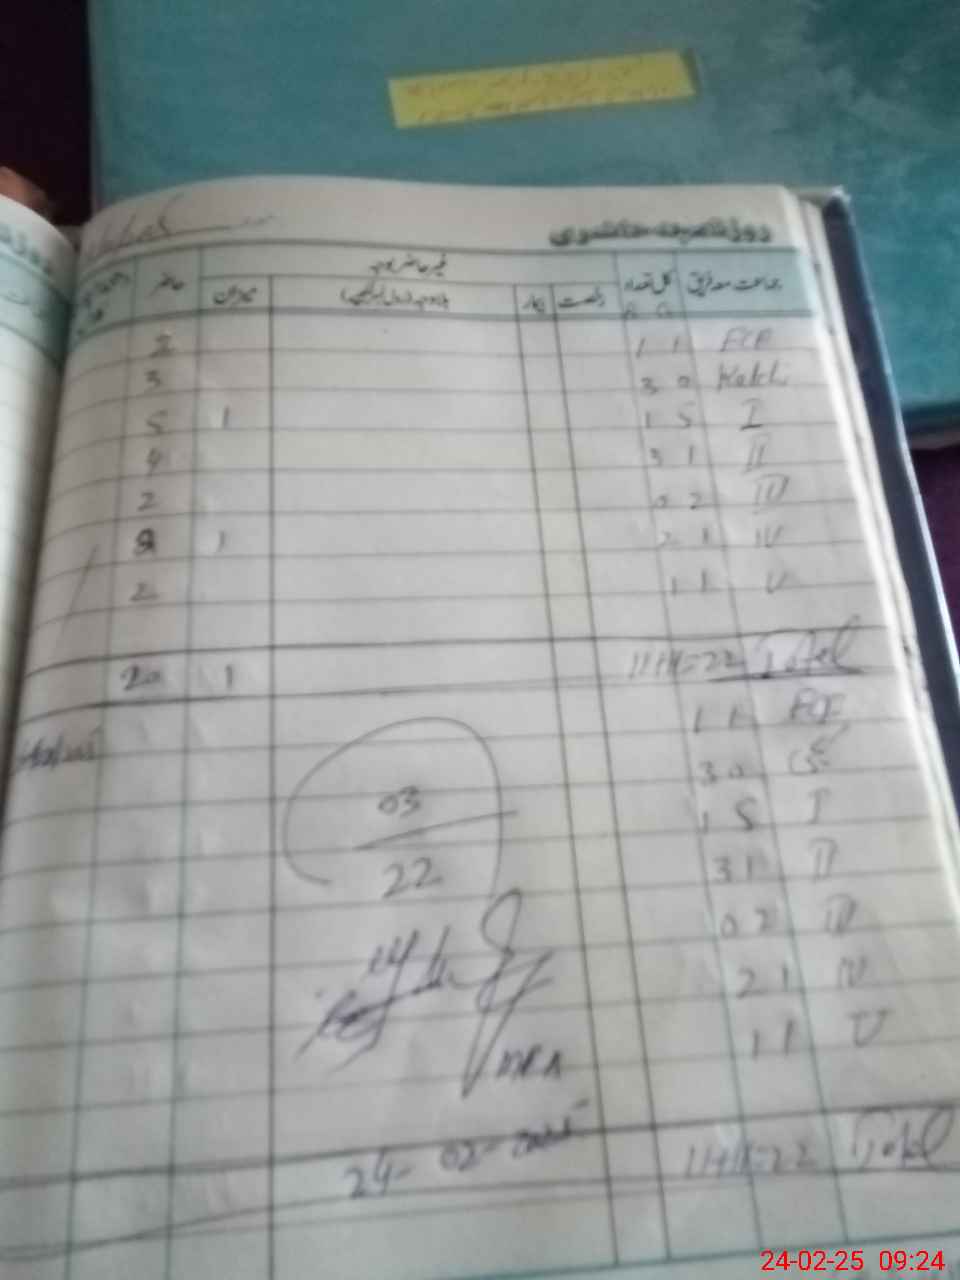 روزنامچہ حاضری
جماعت معہ فریق کل تعداد غیر حاضر بوجہ حاضر
رخصت بیمار بلاوجہ (رول نمبر لکھیے) میزان
ECE 1 1 2
Katchi 0 3 3
I 5 1 1 5
II 1 3 4
III 2 0 2
IV 1 2 1
V 1 1 2
Total 11+11=22 1 20
ECE 1 1
کچی 0 3
I 5 1
II 1 3
III 2 0
IV 1 2
V 1 1
03
22
24-02-2025
Total 11+11=22
24-02-25 09:24